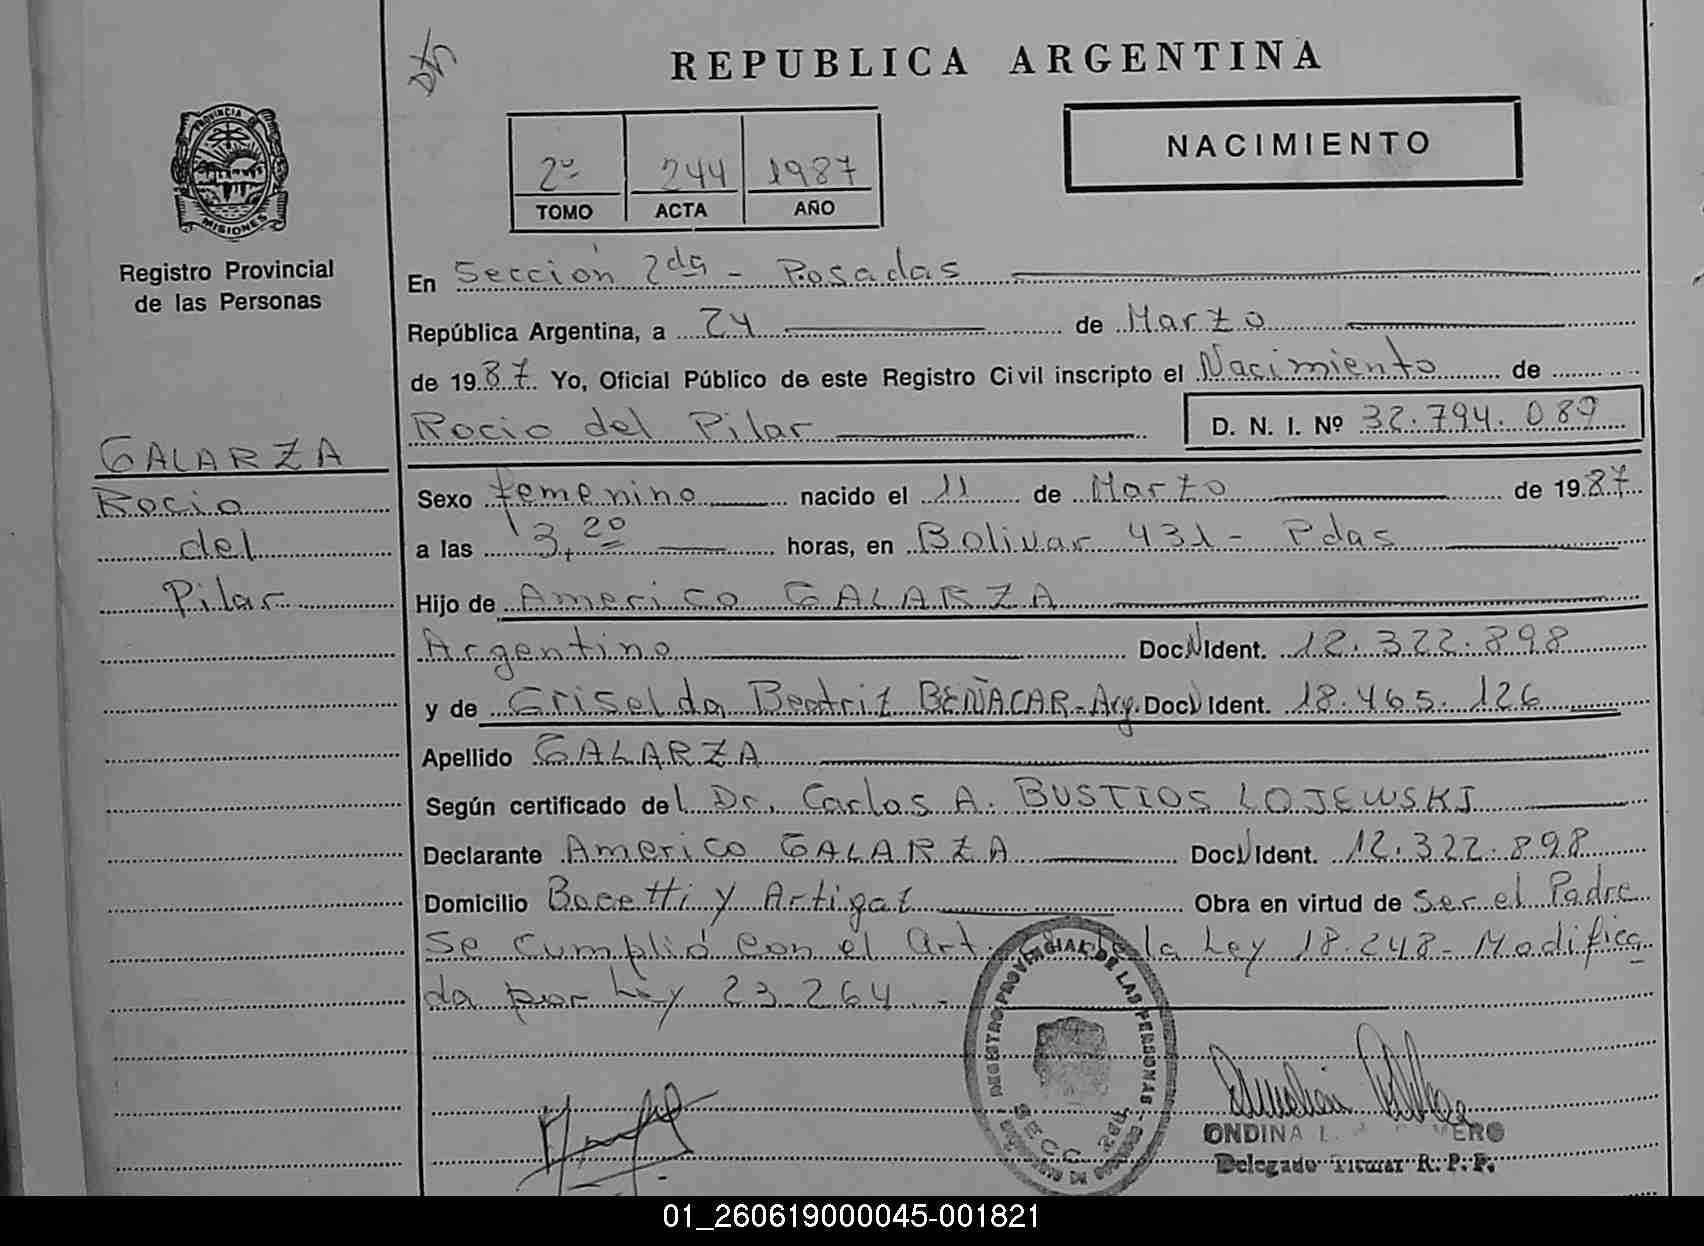 REPUBLICA ARGENTINA
NACIMIENTO
2º 244 1987
TOMO ACTA AÑO
PROVINCIA DE
MISIONES
Registro Provincial
de las Personas
En Sección 2da - Posadas
República Argentina, a 24 de Marzo
de 1987. Yo, Oficial Público de este Registro Civil inscripto el Nacimiento de
Rocio del Pilar D. N. I. Nº 32.794.089
GALARZA
Rocio
del
Pilar
Sexo femenino nacido el 11 de Marzo de 1987
a las 13,20 horas, en Bolivar 431 - Pdas
Hijo de Americo GALARZA
Argentino Doc. N Ident. 12.322.898
y de Griselda Beatriz BEÑACAR - Arg. Doc. N Ident. 18.465.126
Apellido GALARZA
Según certificado del Dr. Carlos A. BUSTIOS LOJEWSKI
Declarante Americo GALARZA Doc. N Ident. 12.322.898
Domicilio Bocetti y Artigaz Obra en virtud de Ser el Padre
Se cumplió con el art. la Ley 18.248 - Modifica
da por Ley 23.264.-
REGISTRO PROVINCIAL DE LAS PERSONAS
SECC.
ONDINA L.
Delegado Titular R. P. P.
01_260619000045-001821